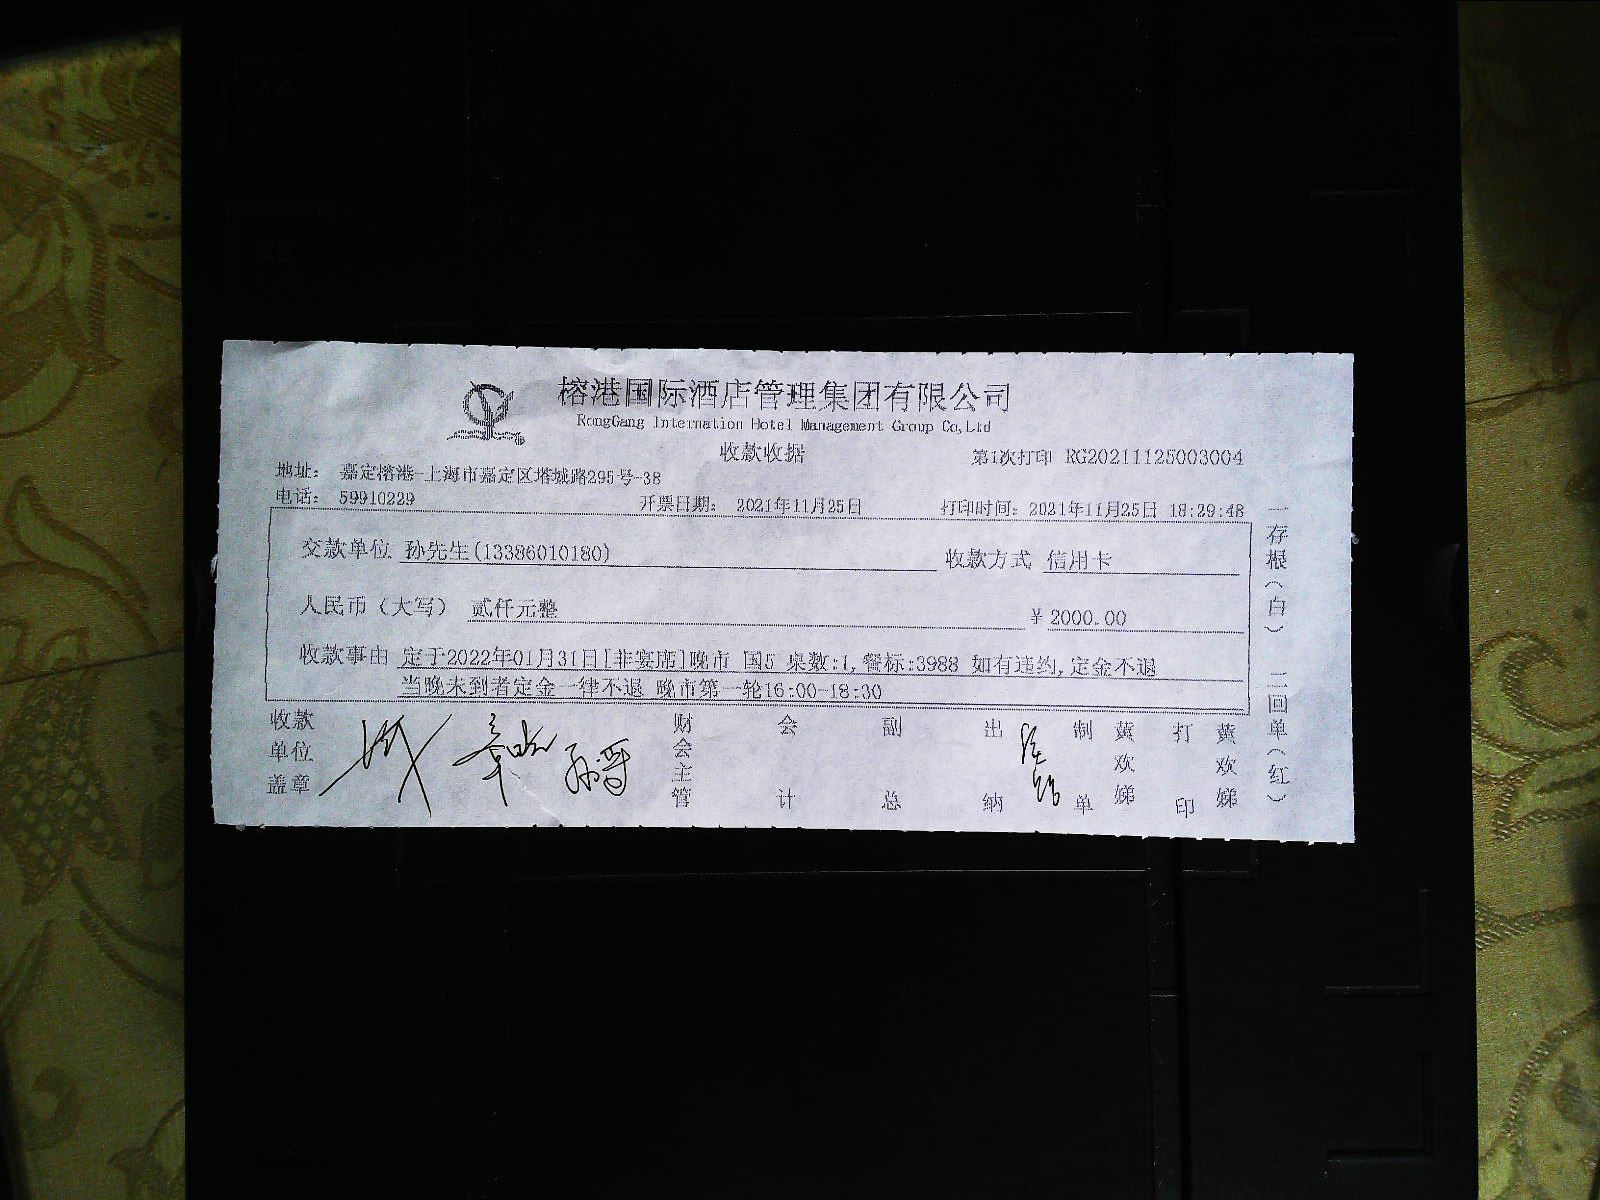 榕港国际酒店管理集团有限公司
RongGang Internation Hotel Management Group Co,Ltd
收款收据
第1次打印 RG20211125003004
地址： 嘉定榕港-上海市嘉定区塔城路295号-38
电话： 59910229
开票日期： 2021年11月25日
打印时间：2021年11月25日 18:29:48
交款单位 孙先生(13386010180)
收款方式 信用卡
人民币（大写） 贰仟元整
¥ 2000.00
收款事由 定于2022年01月31日[非宴席]晚市 国5 桌数:1,餐标:3988 如有违约,定金不退
当晚未到者定金一律不退 晚市第一轮16:00-18:30
收款单位盖章
财会主管
会计
副总
出纳
制单
黄欢娣
打印
黄欢娣
一存根(白) 二回单(红)